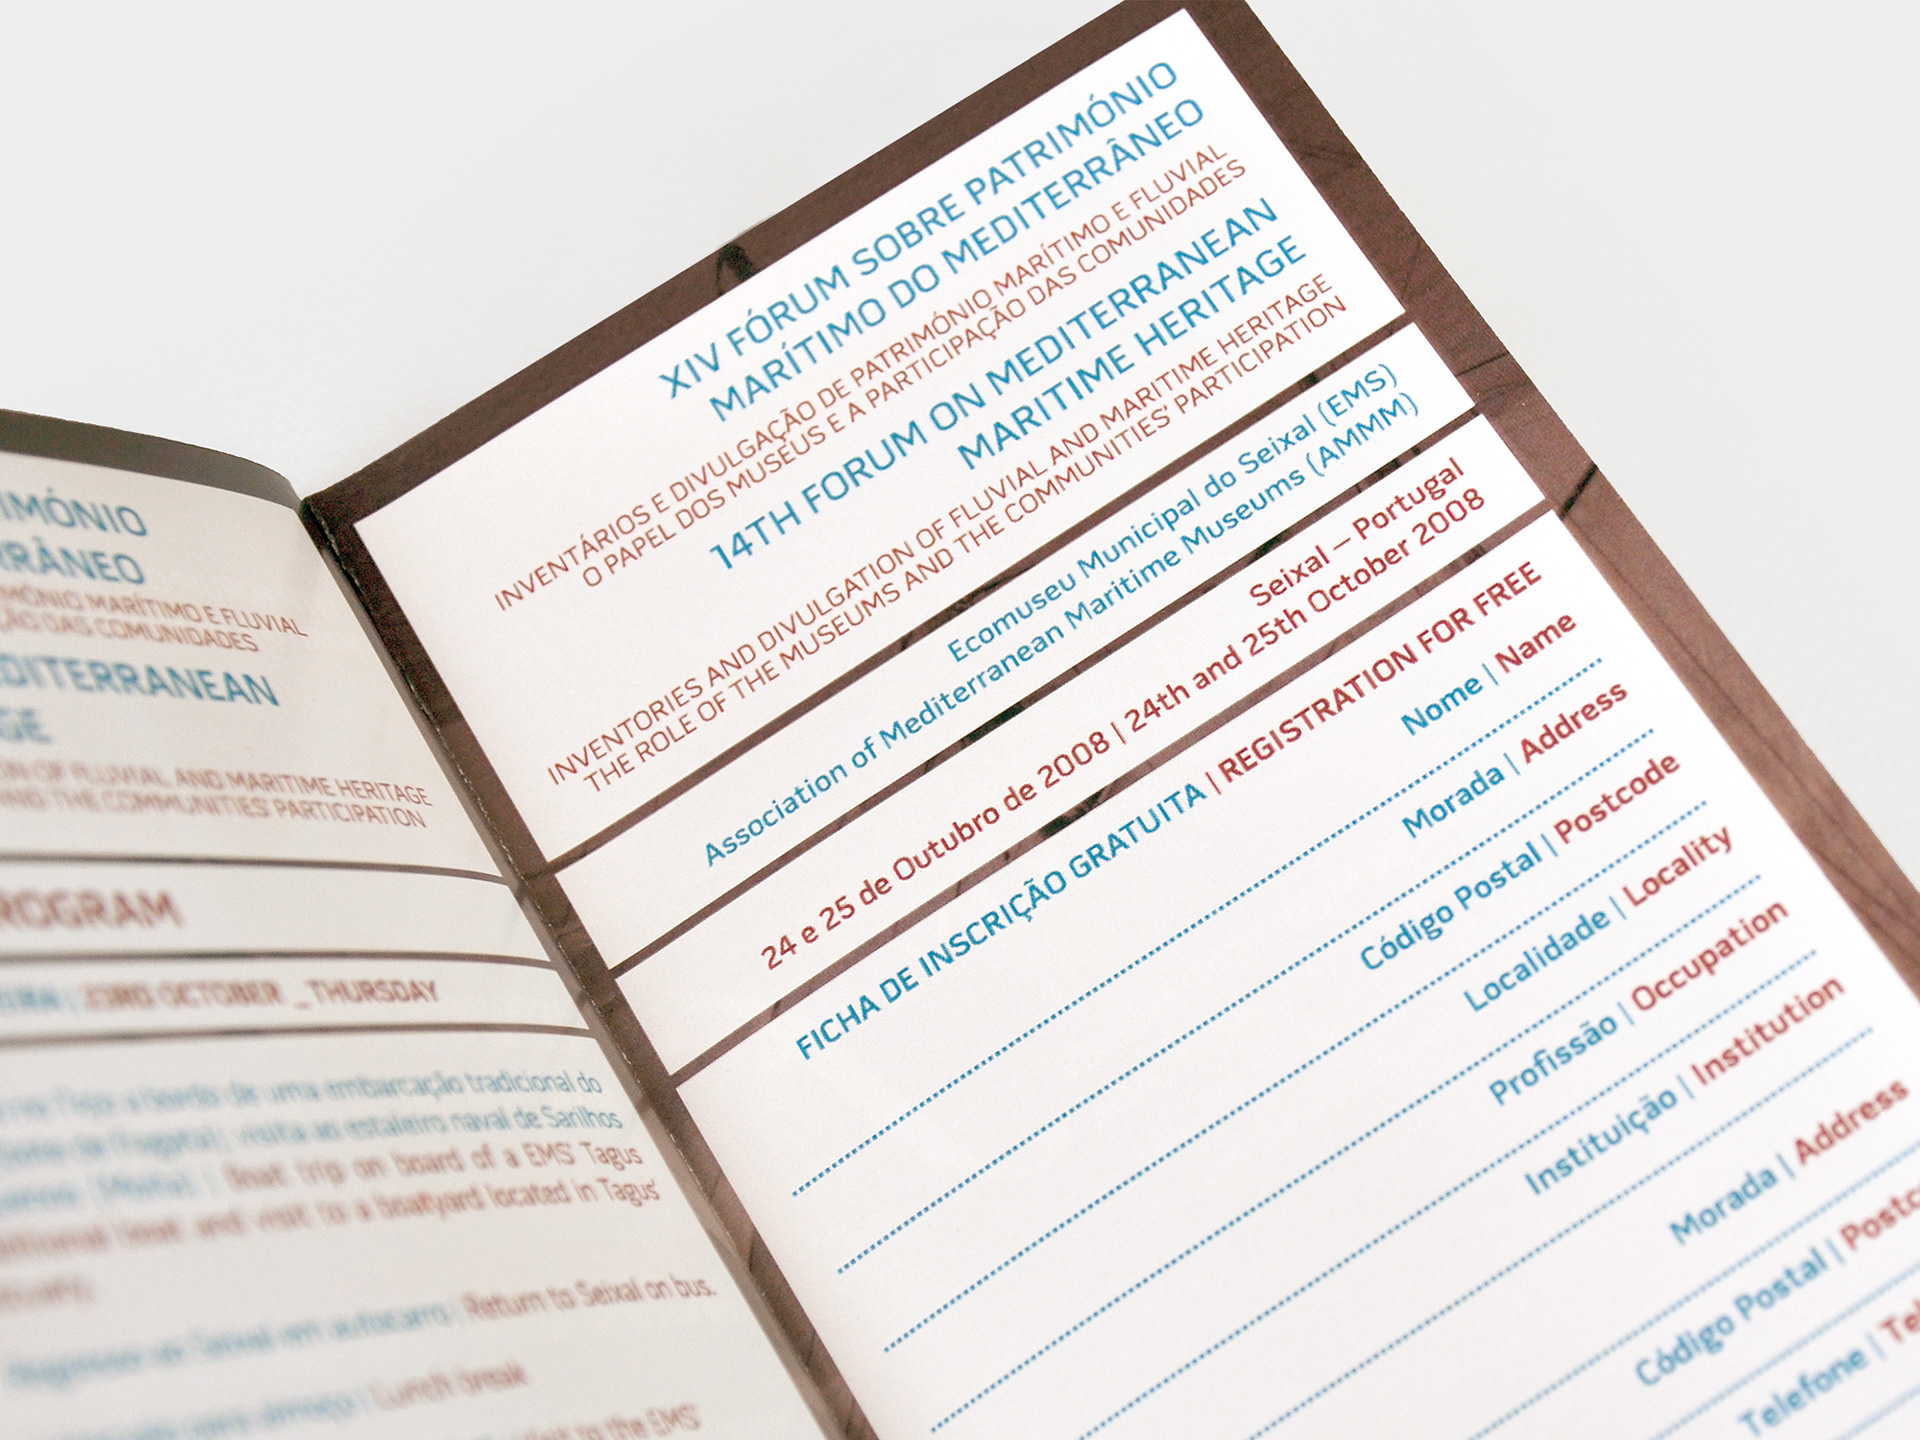 IMÓNIO
RRÂNEO
IMÓNIO MARÍTIMO E FLUVIAL
ÇÃO DAS COMUNIDADES
EDITERRANEAN
GE
ON OF FLUVIAL AND MARITIME HERITAGE
AND THE COMMUNITIES' PARTICIPATION
ROGRAM
| 23RD OCTOBER _THURSDAY
Tejo a bordo de uma embarcação tradicional do
visita ao estaleiro naval de Sarilhos
| Boat trip on board of a EMS' Tagus
boat and visit to a boatyard located in Tagus'
Regresso ao Seixal em autocarro | Return to Seixal on bus.
para almoço | Lunch break
Visit to the EMS'
XIV FÓRUM SOBRE PATRIMÓNIO
MARÍTIMO DO MEDITERRÂNEO
INVENTÁRIOS E DIVULGAÇÃO DE PATRIMÓNIO MARÍTIMO E FLUVIAL
O PAPEL DOS MUSEUS E A PARTICIPAÇÃO DAS COMUNIDADES
14TH FORUM ON MEDITERRANEAN
MARITIME HERITAGE
INVENTORIES AND DIVULGATION OF FLUVIAL AND MARITIME HERITAGE
THE ROLE OF THE MUSEUMS AND THE COMMUNITIES' PARTICIPATION
Ecomuseu Municipal do Seixal (EMS)
Association of Mediterranean Maritime Museums (AMMM)
Seixal – Portugal
24 e 25 de Outubro de 2008 | 24th and 25th October 2008
FICHA DE INSCRIÇÃO GRATUITA | REGISTRATION FOR FREE
Nome | Name
Morada | Address
Código Postal | Postcode
Localidade | Locality
Profissão | Occupation
Instituição | Institution
Morada | Address
Código Postal | Postc
Telefone | Te